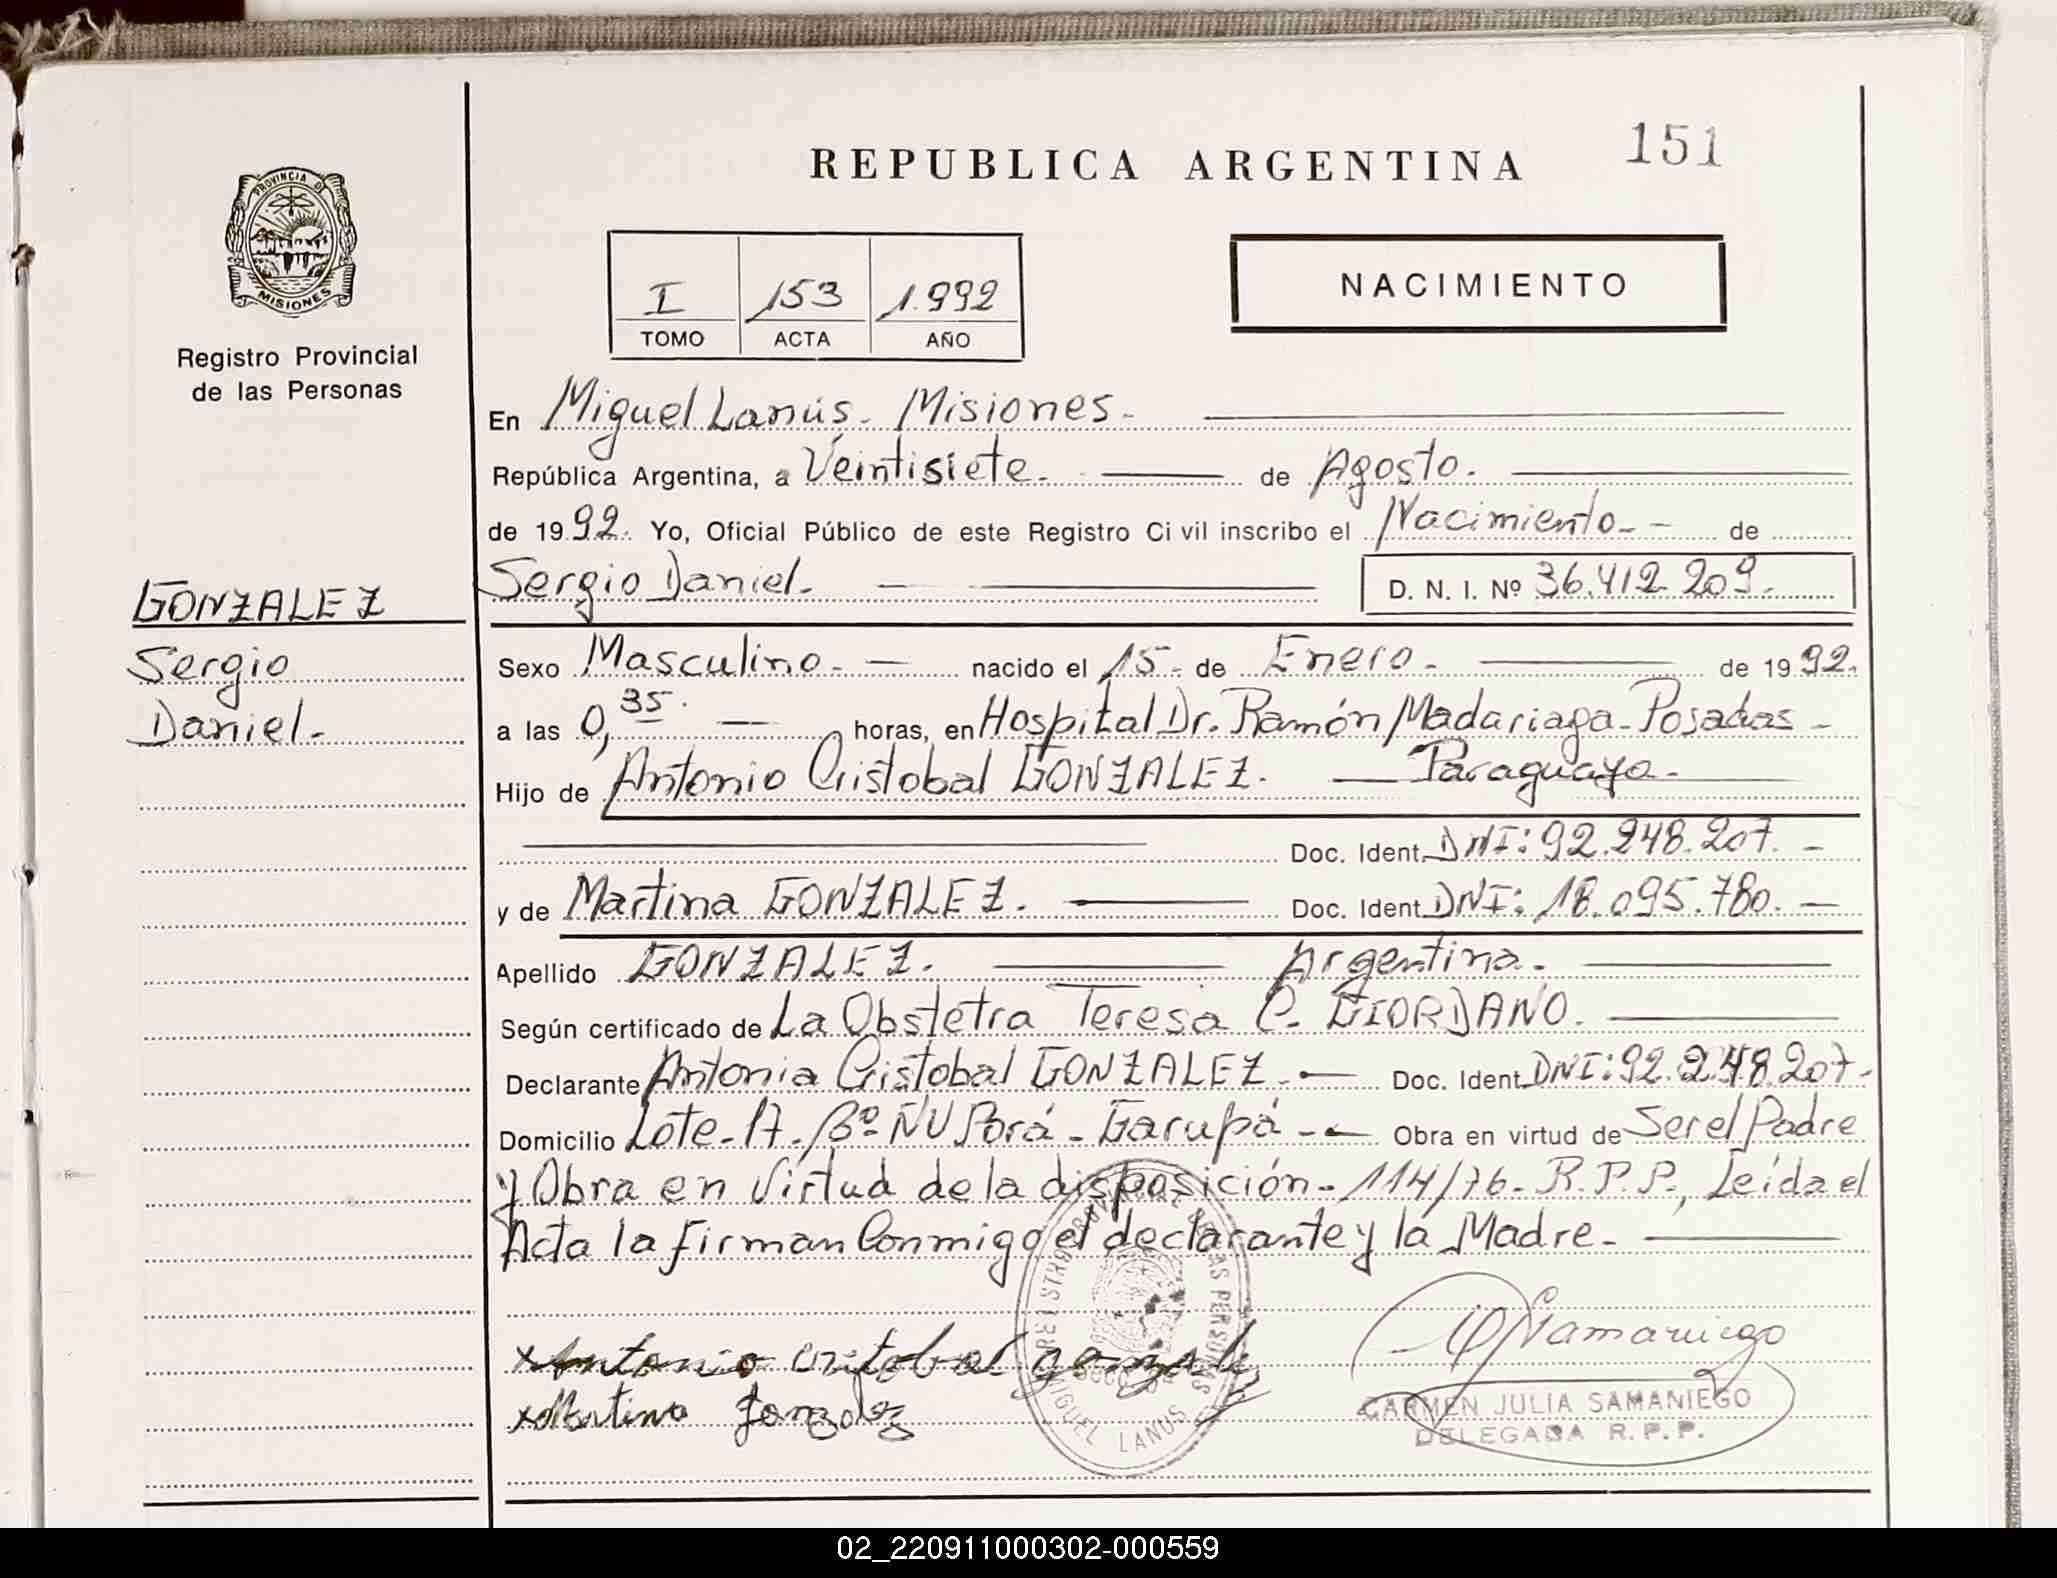 REPUBLICA ARGENTINA
151
PROVINCIA DE
MISIONES
Registro Provincial
de las Personas
I 153 1.992
TOMO ACTA AÑO
NACIMIENTO
En Miguel Lanús. Misiones.
República Argentina, a Veintisiete. de Agosto.
de 1992. Yo, Oficial Público de este Registro Civil inscribo el Nacimiento.- de
Sergio Daniel. D. N. I. Nº 36.412.209.
GONZALEZ
Sergio
Daniel.
Sexo Masculino. nacido el 15. de Enero. de 1992.
a las 0,35. horas, en Hospital Dr. Ramón Madariaga-Posadas-
Hijo de Antonio Cristobal GONZALEZ. Paraguayo.
Doc. Ident. DNI: 92.248.207.
y de Martina GONZALEZ. Doc. Ident. DNI: 18.095.780.
Apellido GONZALEZ. Argentina.
Según certificado de La Obstetra Teresa C. GIORDANO.
Declarante Antonia Cristobal GONZALEZ. Doc. Ident. DNI: 92.248.207.
Domicilio Lote-17. Bº ÑU Porá - Garupá - Obra en virtud de Ser el Padre
y Obra en virtud de la disposición-114/76-R.P.P., Leída el
Acta la firman Conmigo el declarante y la Madre.
x Antonio critobal gonzale
x Martina Gonzalez
REGISTRO PROVINCIAL DE LAS PERSONAS
MIGUEL LANUS
CARMEN JULIA SAMANIEGO
DELEGADA R.P.P.
02_220911000302-000559